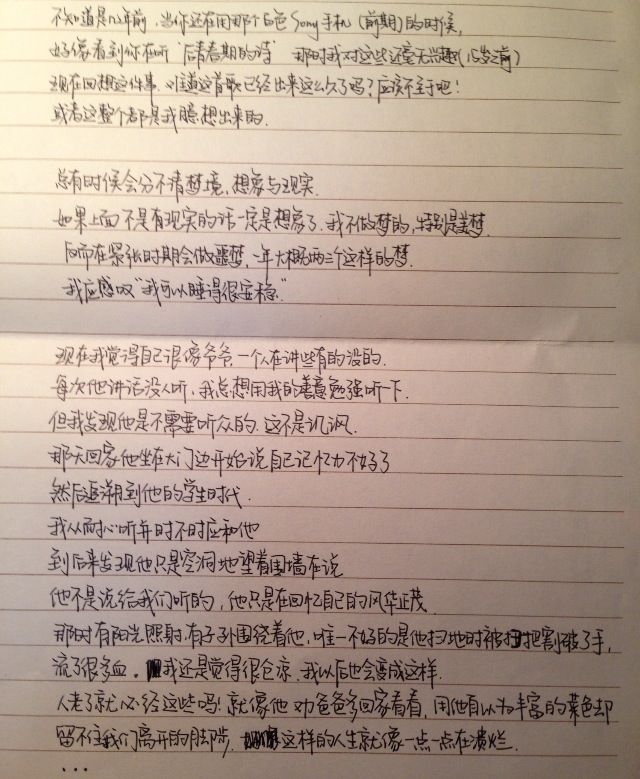 不知道是几年前，当你还在用那个白色Sony手机（前期）的时候，
好像看到你在听“后青春期的诗” 那时我对这些还毫无兴趣（15岁之前）
现在回想这件事，难道这首歌已经出来这么久了吗？应该不至于吧！
或者这整个都是我臆想出来的.
总有时候会分不清梦境，想象与现实.
如果上面不是有现实的话一定是想象了，我不做梦的，特别是美梦.
反而在紧张时期会做噩梦，一年大概两三个这样的梦.
我应感叹“我可以睡得很安稳”
现在我觉得自己很像爷爷，一个人在讲些有的没的.
每次他讲话没人听，我总想用我的善意勉强听一下.
但我发现他是不需要听众的，这不是讥讽.
那天回家他坐在大门边开始说自己记忆力不好了
然后追溯到他的学生时代.
我从耐心听并时不时应和他
到后来发现他只是空洞地望着围墙在说
他不是说给我们听的，他只是在回忆自己的风华正茂.
那时有阳光照射，有子孙围绕着他，唯一不好的是他扫地时被扫把割破了手，
流了很多血. 我还是觉得很苍凉，我以后也会变成这样.
人老了就必经这些吗！就像他劝爸爸多回家看看，用他自以为丰富的菜色却
留不住我们离开的脚步. 这样的人生就像一点一点在溃烂.
...